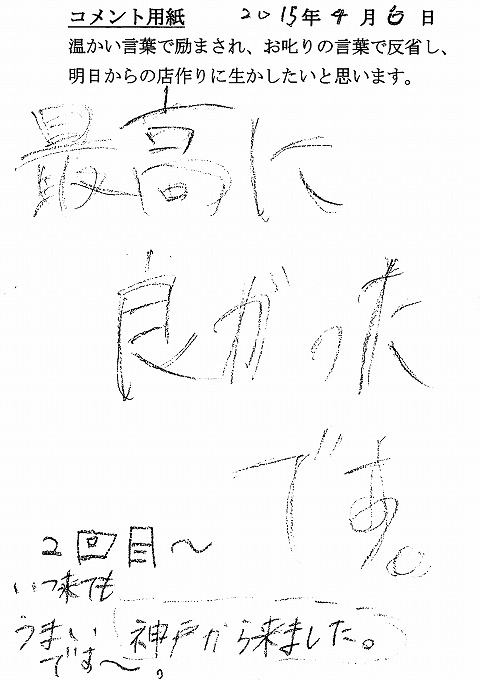 コメント用紙 2015年4月6日
温かい言葉で励まされ、お叱りの言葉で反省し、
明日からの店作りに生かしたいと思います。
最高に
良がった
です。
2回目～
いつ来ても
うまい
です～。
神戸から来ました。